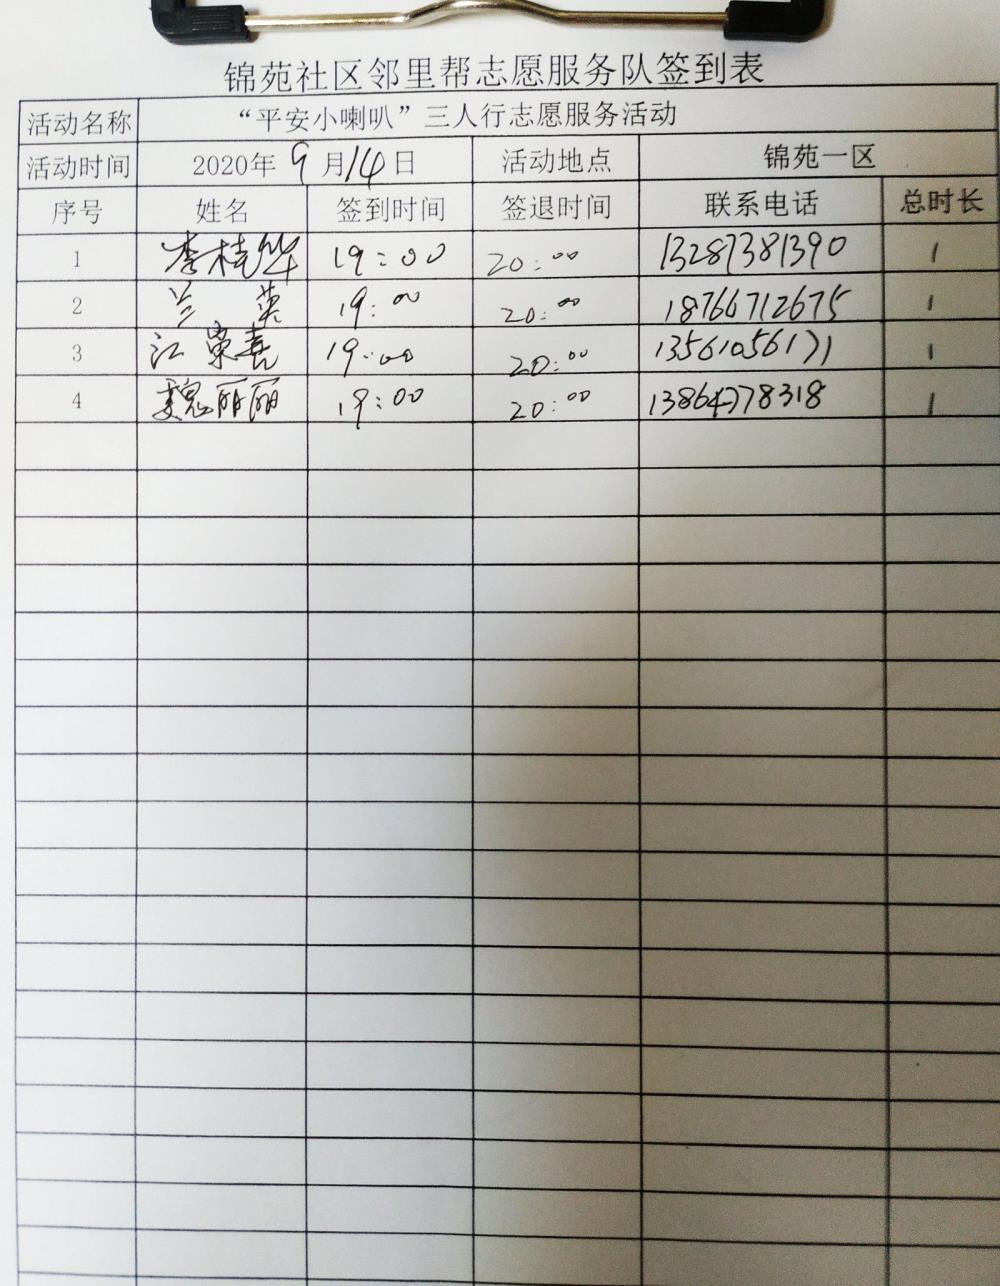 锦苑社区邻里帮志愿服务队签到表
活动名称 “平安小喇叭”三人行志愿服务活动
活动时间 2020年 9 月 14 日 活动地点 锦苑一区
序号 姓名 签到时间 签退时间 联系电话 总时长
1 李桂华 19:00 20:00 13287381390 1
2 兰英 19:00 20:00 18766712675 1
3 江荣喜 19:00 20:00 13561056171 1
4 魏丽丽 19:00 20:00 13864278318 1